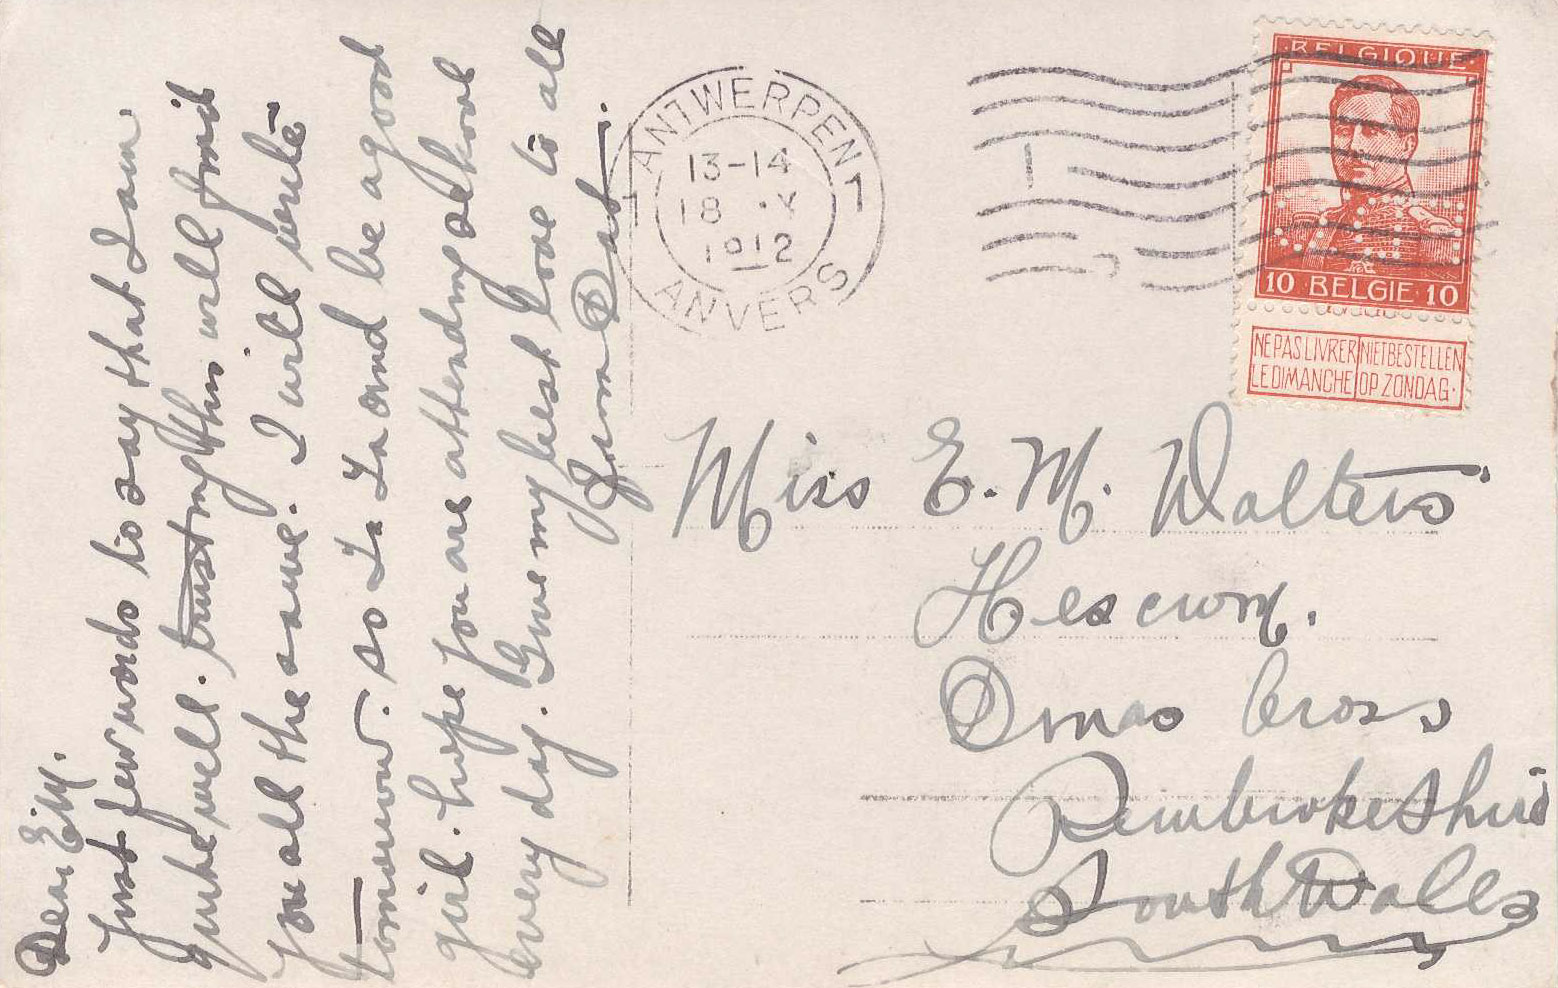 Dear E.M.
Just few words to say that I am
quite well. trusting this will find
you all the same. I will write
tomorrow. so Ta Ta and be a good
girl. hope you are attending school
every day. Give my best love to all
from Dat.
1 ANTWERPEN 1
13-14
18 · X
1912
ANVERS
BELGIQUE
10 BELGIE 10
NE PAS LIVRER NIET BESTELLEN
LE DIMANCHE OP ZONDAG.
Miss E. M. Walters
Hescwm.
Dinas Cross
Pembrokeshire
South Wales